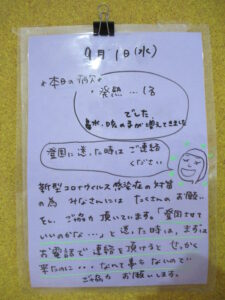 7月1日(水)
☆本日の病欠☆
・発熱…1名
でした
鼻水、咳の子が増えてきました
登園に迷った時はご連絡
ください
新型コロナウイルス感染症の対策
の為 みなさんには たくさんの お願い
をし、ご協力頂いています。「登園させて
いいのかな…」と迷った時は、まずは
お電話で連絡を頂けると せっかく
来たのに…なんて事もないので
ご協力 お願いします。